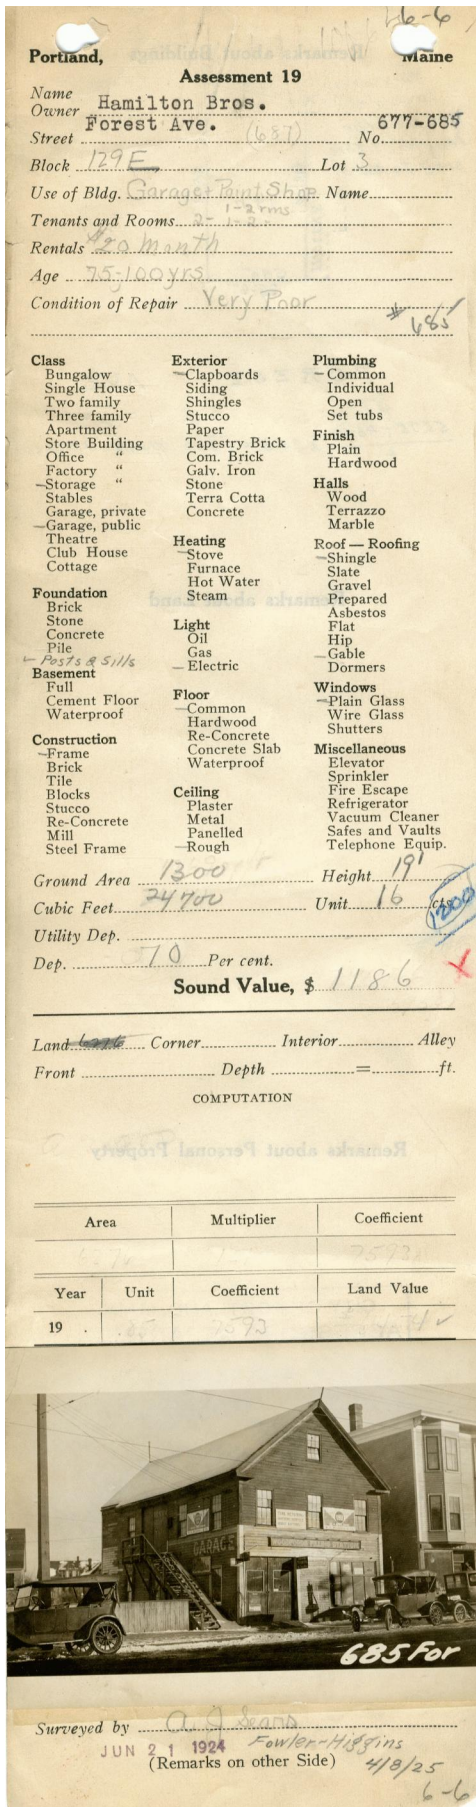 6-6
Portland, Maine
Assessment 19
Name
Owner Hamilton Bros.
Street Forest Ave. (687) No. 677-685
Block 129E Lot 3
Use of Bldg. Garage & Paint Shop Name
1-2 rms
Tenants and Rooms 2- 1-2-
Rentals $20 month
Age 75-100 yrs
Condition of Repair Very Poor
# 685
Class
Bungalow
Single House
Two family
Three family
Apartment
Store Building
Office "
Factory "
-Storage "
Stables
Garage, private
-Garage, public
Theatre
Club House
Cottage
Foundation
Brick
Stone
Concrete
Pile
- Posts & Sills
Basement
Full
Cement Floor
Waterproof
Construction
-Frame
Brick
Tile
Blocks
Stucco
Re-Concrete
Mill
Steel Frame
Exterior
-Clapboards
Siding
Shingles
Stucco
Paper
Tapestry Brick
Com. Brick
Galv. Iron
Stone
Terra Cotta
Concrete
Heating
-Stove
Furnace
Hot Water
Steam
Light
Oil
Gas
-Electric
Floor
-Common
Hardwood
Re-Concrete
Concrete Slab
Waterproof
Ceiling
Plaster
Metal
Panelled
-Rough
Plumbing
-Common
Individual
Open
Set tubs
Finish
Plain
Hardwood
Halls
Wood
Terrazzo
Marble
Roof — Roofing
-Shingle
Slate
Gravel
Prepared
Asbestos
Flat
Hip
-Gable
Dormers
Windows
-Plain Glass
Wire Glass
Shutters
Miscellaneous
Elevator
Sprinkler
Fire Escape
Refrigerator
Vacuum Cleaner
Safes and Vaults
Telephone Equip.
Ground Area 1300 Height 19'
Cubic Feet 24700 Unit 16 cts.
1200
Utility Dep.
Dep. 70 Per cent.
X
Sound Value, $ 1186
Land Corner Interior Alley
Front Depth = ft.
COMPUTATION
Area Multiplier Coefficient
7593
Year Unit Coefficient Land Value
19 . .85 7593
GARAGE
685 For
Surveyed by A J Sears
JUN 21 1924 Fowler-Higgins
(Remarks on other Side) 4/8/25
6-6